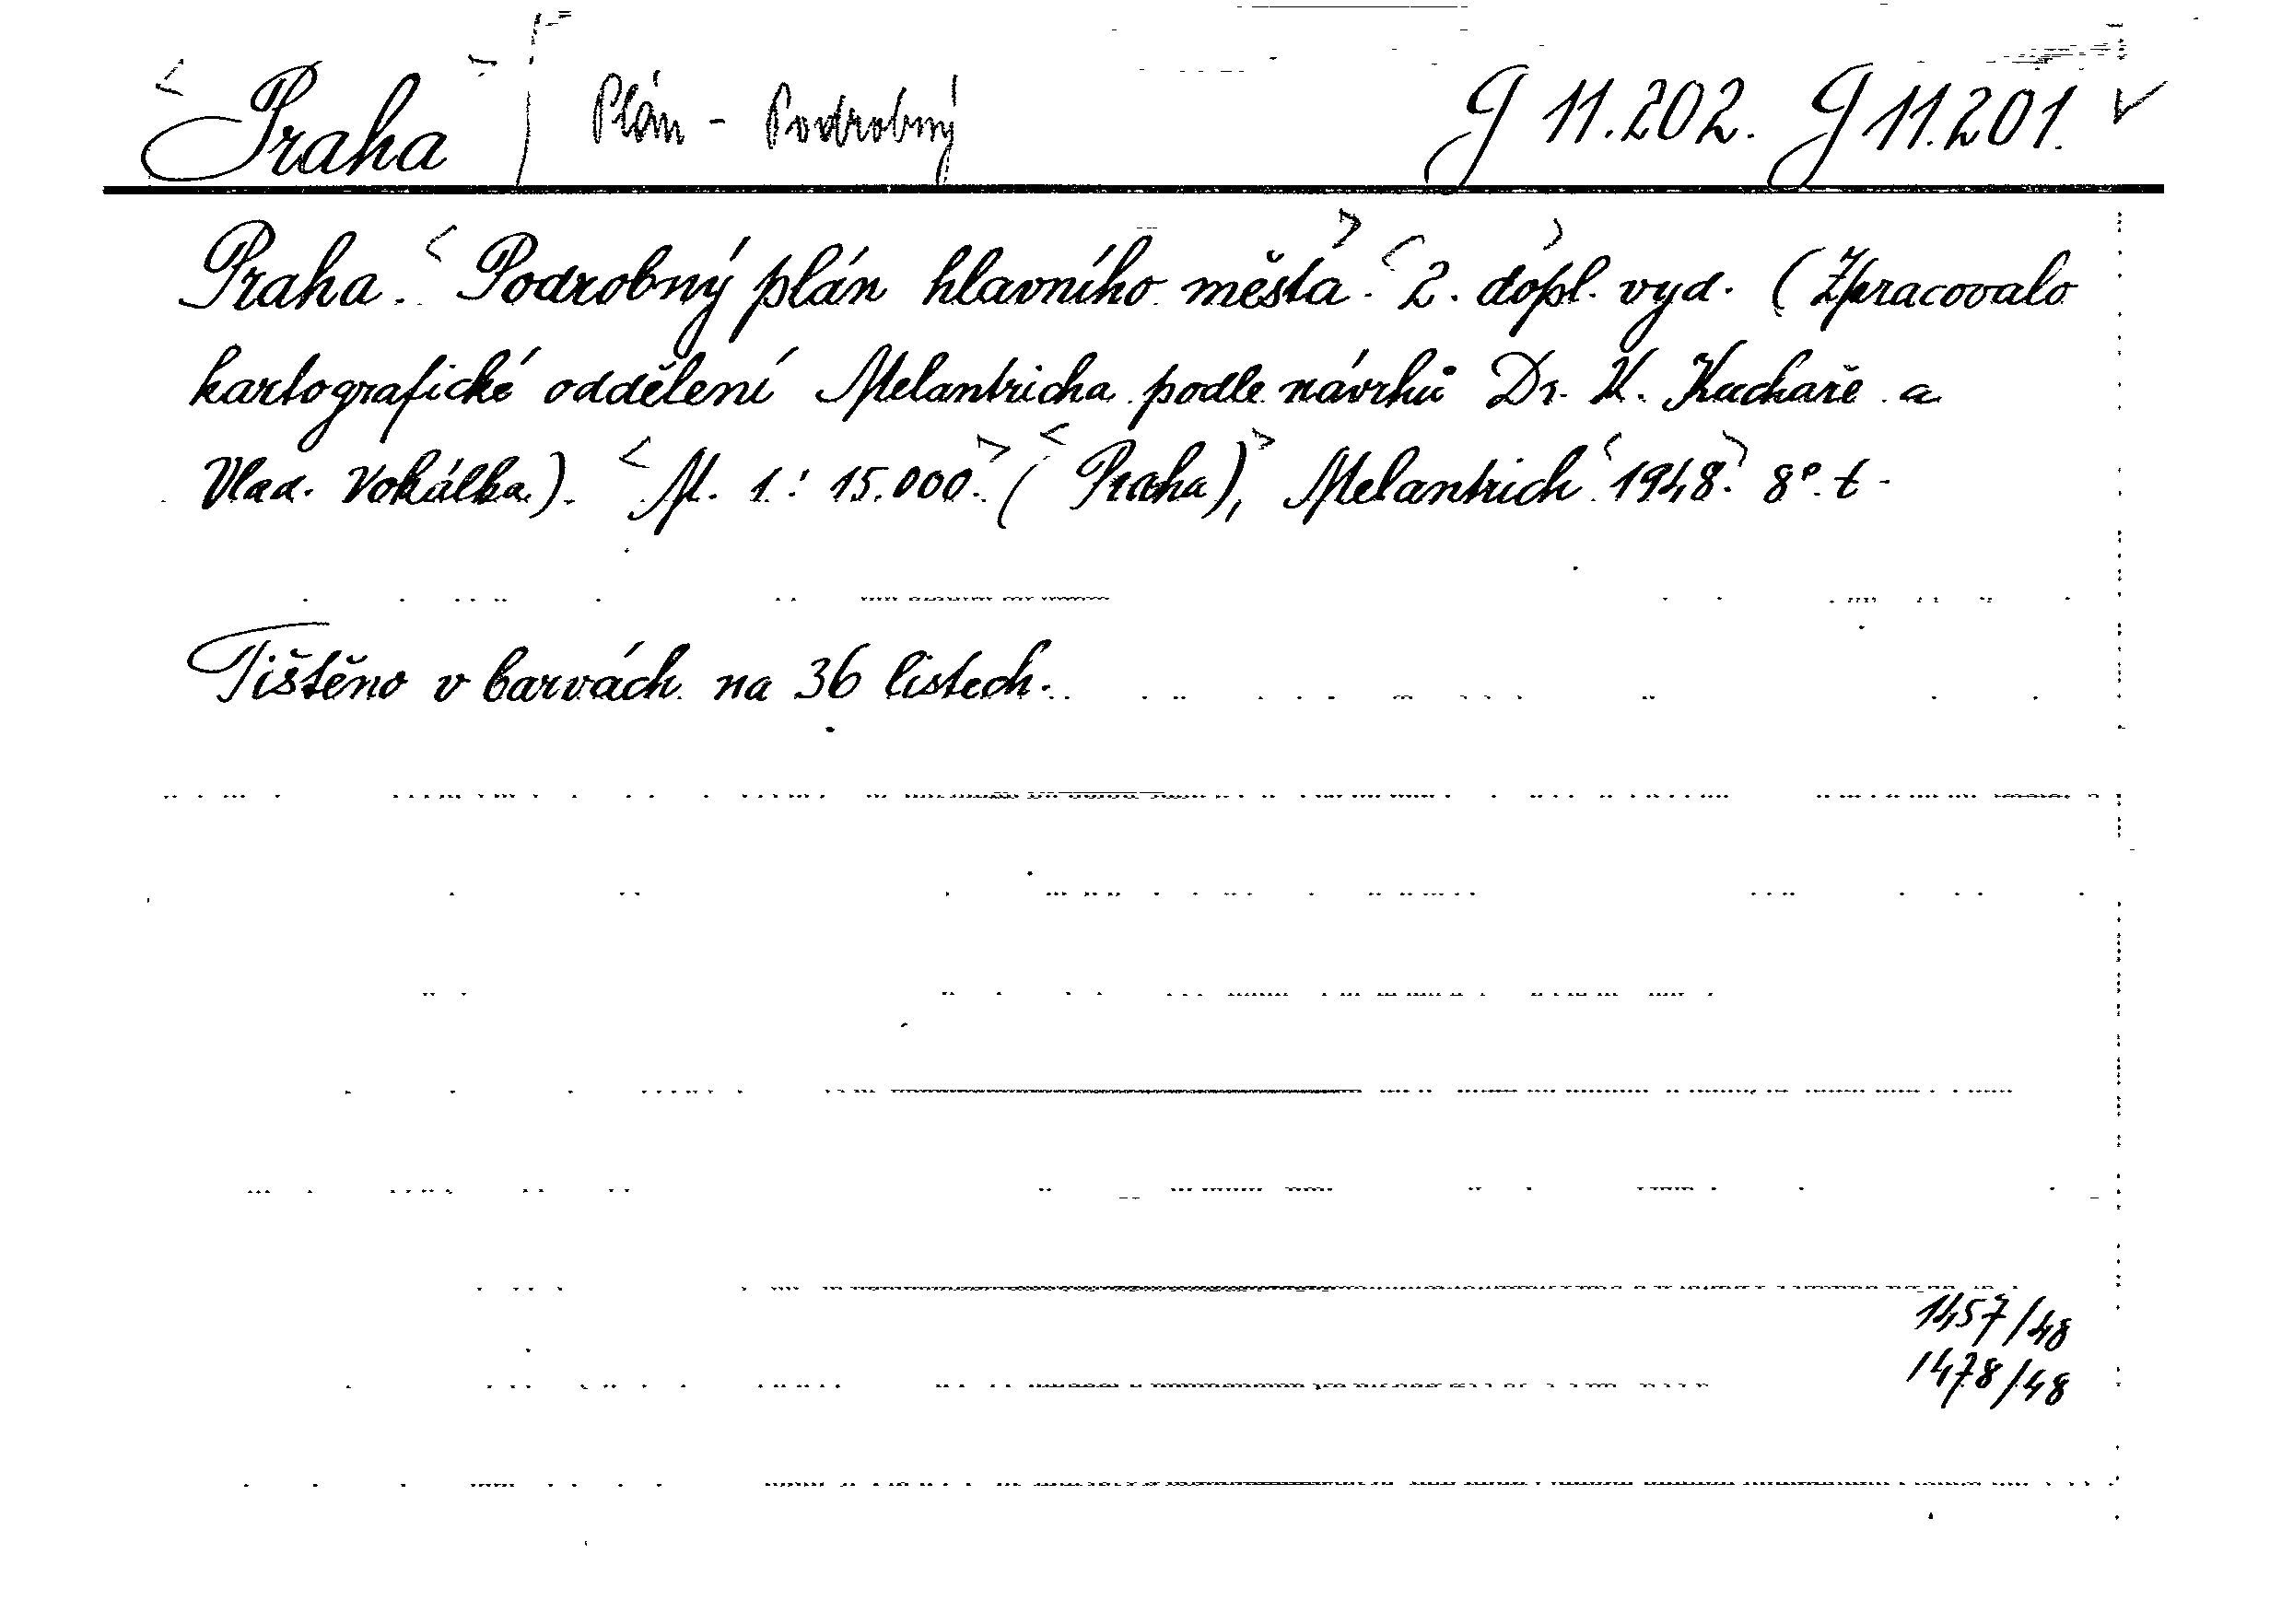 <Praha> Plán - Podrobný G 11.202. G 11.201. ✓
Praha. <Podrobný plán hlavního města>. <2. dopl.> vyd. (Zpracovalo
kartografické oddělení Melantricha podle návrhů Dr. K. Kuchaře a
Vlad. Vokálka.). <M. 1 : 15.000.> (<Praha),> Melantrich <1948>. 8°. t.
Tištěno v barvách na 36 listech.
1457/48
1478/48